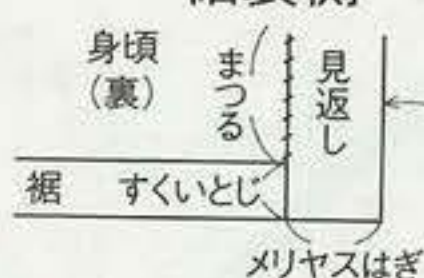 身頃
(裏)
まつる
見返し
裾
すくいとじ
メリヤスはぎ